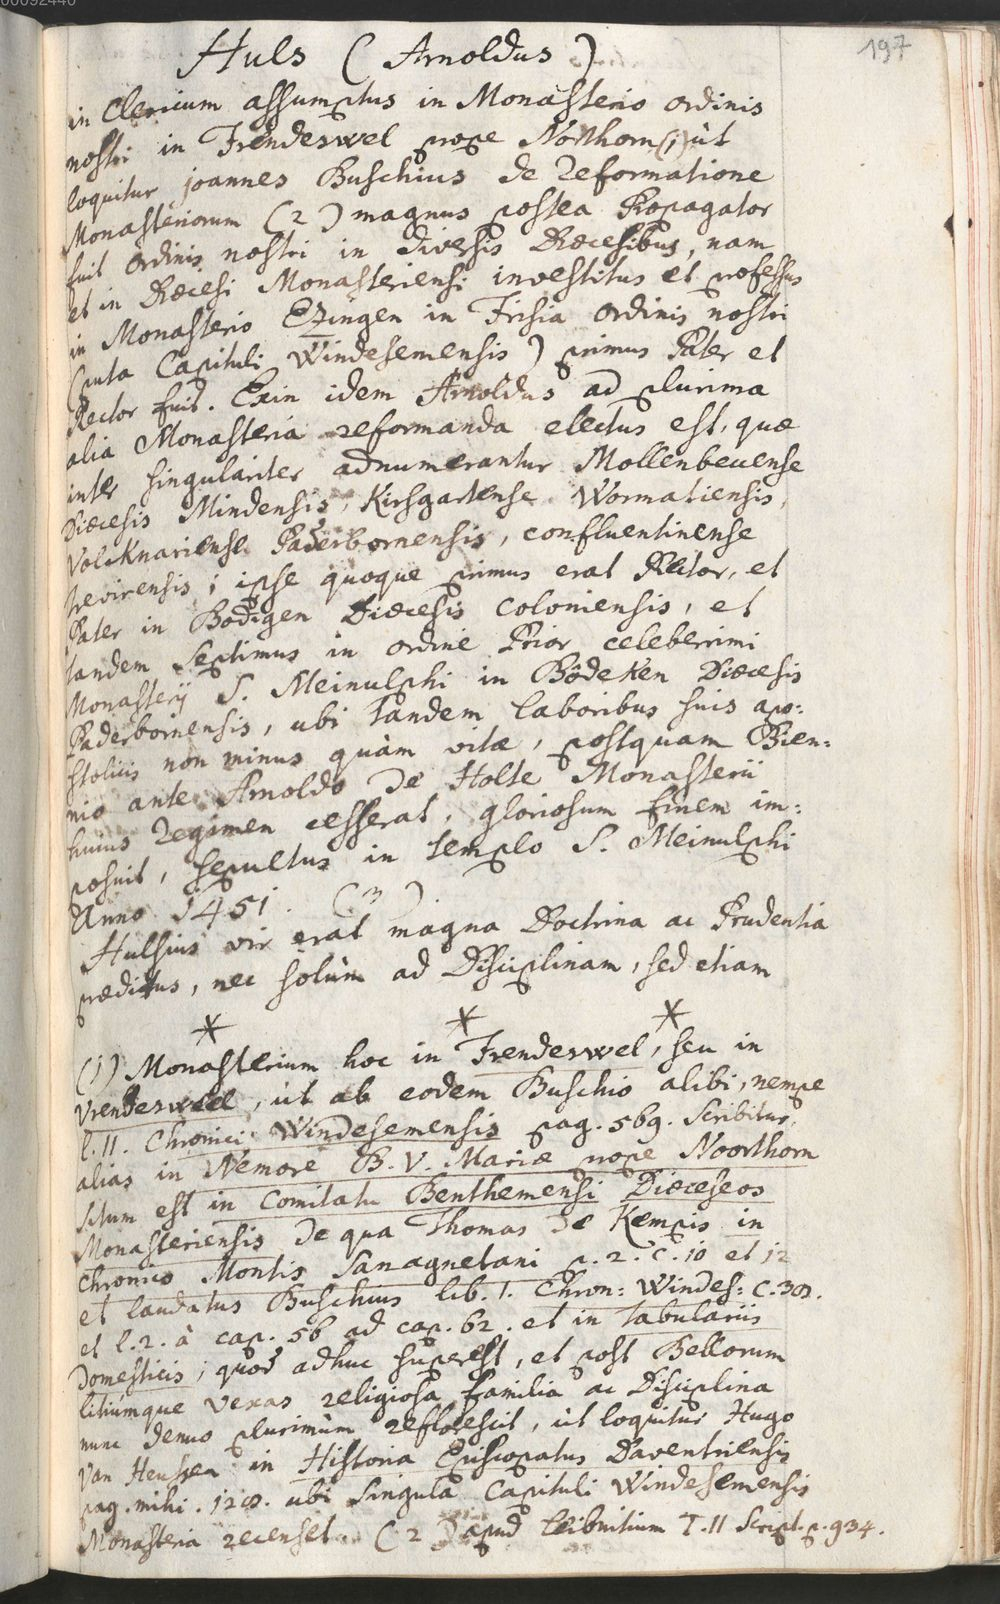 00092440
197
Huls ( Arnoldus )
in Clericum assumptus in Monasterio ordinis
nostri in Frendeswel prope Northorn (1) ùt
loquitur joannes Buschius de Reformatione
Monasteriorum (2) magnus postea Propagator
fuit ordinis nostri in diversis Diœcesibus, nam
et in Diœcesi Monasteriensi investitus et professus
in Monasterio Ezingen in Frisia ordinis nostri
(puta Capituli Windesemensis) primus Pater et
Rector fuit. Exin idem Arnoldus ad plurima
alia Monasteria reformanda electus est, quæ
inter singulariter adnumerantur Mollenbecense
Diœcesis Mindensis, Kirsgartense Wormatiensis,
Volcknariense Paderbornensis, confluentinense
Trevirensis; ipse quoque primus erat Rector, et
Pater in Bödigen Diœcesis Coloniensis, et
tandem septimus in ordine Prior celeberrimi
Monasterij S. Meinulphi in Bödeken Diœcesis
Paderbornensis, ubi tandem laboribus suis apo:
stolicis non minus quàm vitæ, postquam Bien=
nio ante Arnoldo de Holte Monasterii
huius Regimen cesserat, gloriosum finem im:
posuit, sepultus in templo S. Meinulphi
Anno 1451. (3)
Hulsius vir erat magna Doctrina ac Prudentia
præditus, nec solùm ad Disciplinam, sed etiam
* * *
(1) Monasterium hoc in Frendeswel, seu in
Vrendeswel, ùt ab eodem Buschio alibi, nempe
l. II. Chronici Windesemensis pag. 569. scribitur,
alias in Nemore B. V. Mariæ prope Noorthorn
situm est in Comitatu Benthemensi Diœceseos
Monasteriensis de qua Thomas de Kempis in
Chronico Montis Sanagnetani p. 2. c. 10 et 12
et laudatus Buschius lib. 1. Chron: Windes: c. 38.
et l. 2. à cap. 56 ad cap. 62. et in tabulariis
Domesticis; quod adhuc superest, et post Bellorum
litiumque vexas religiosa familia ac Disciplina
nunc denuo plurimùm reflorescit, ùt loquitur Hugo
van Heussen in Historia Episcopatus Daventriensis
pag. mihi. 128. ubi singula Capituli Windesemensis
Monasteria recenset. (2) apud Leibnitium T. II Script. p. 934.